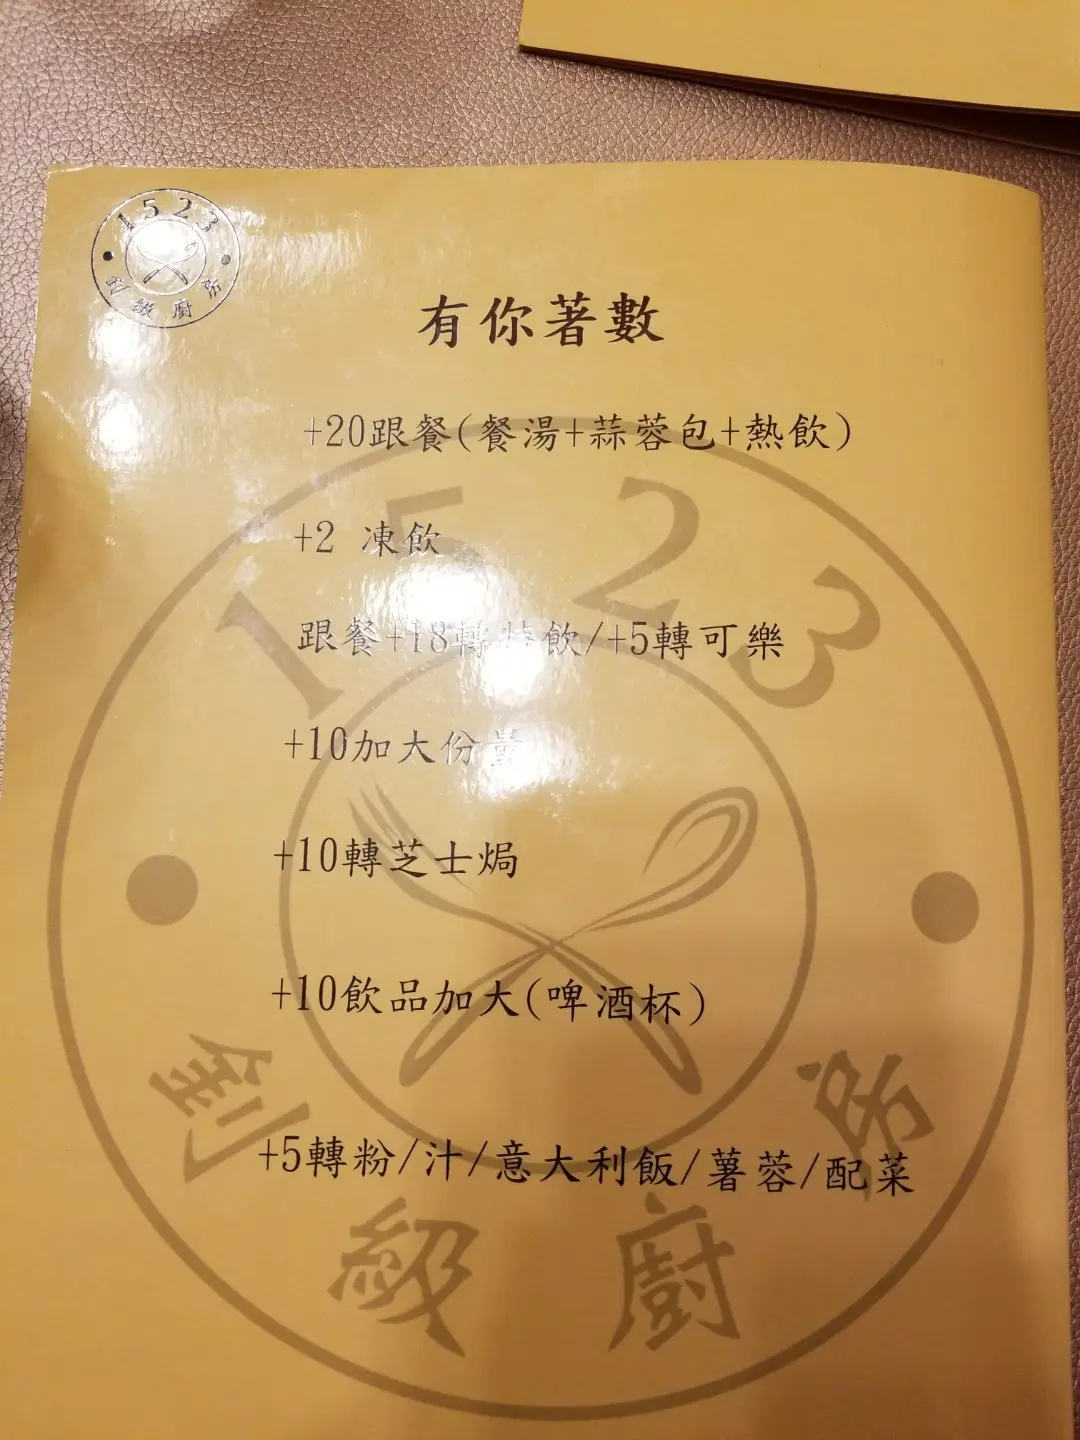 1523
釗級廚房
有你著數
+20跟餐(餐湯+蒜蓉包+熱飲)
+2 凍飲
跟餐+18轉特飲/+5轉可樂
+10加大份量
+10轉芝士焗
+10飲品加大(啤酒杯)
+5轉粉/汁/意大利飯/薯蓉/配菜
1523
釗級廚房